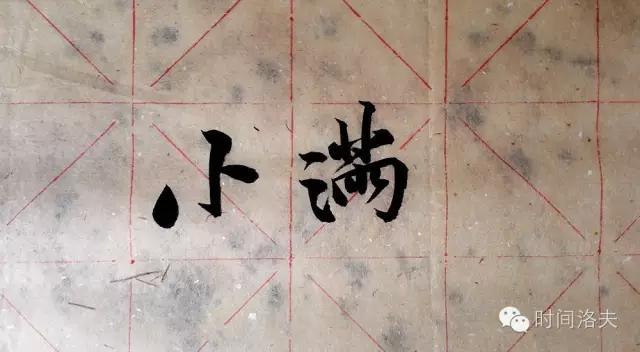 小满
时间洛夫